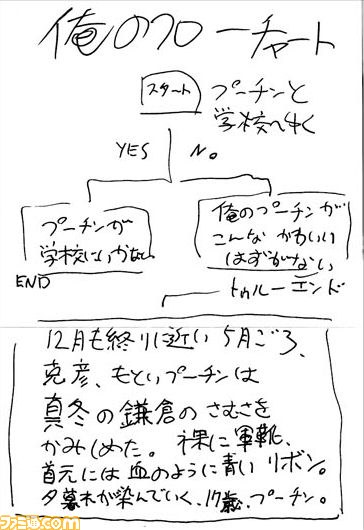 俺のフローチャート
スタート
プーチンと
学校へゆく
YES
No.
プーチンが
学校にいかない
END
俺のプーチンが
こんなかわいい
はずがない
トゥルーエンド
12月も終りに近い5月ごろ、
克彦、もといプーチンは
真冬の鎌倉のさむさを
かみしめた。裸に軍靴、
首元には血のように青いリボン。
夕暮れが染んでいく、17歳、プーチン。
ファミ通.com